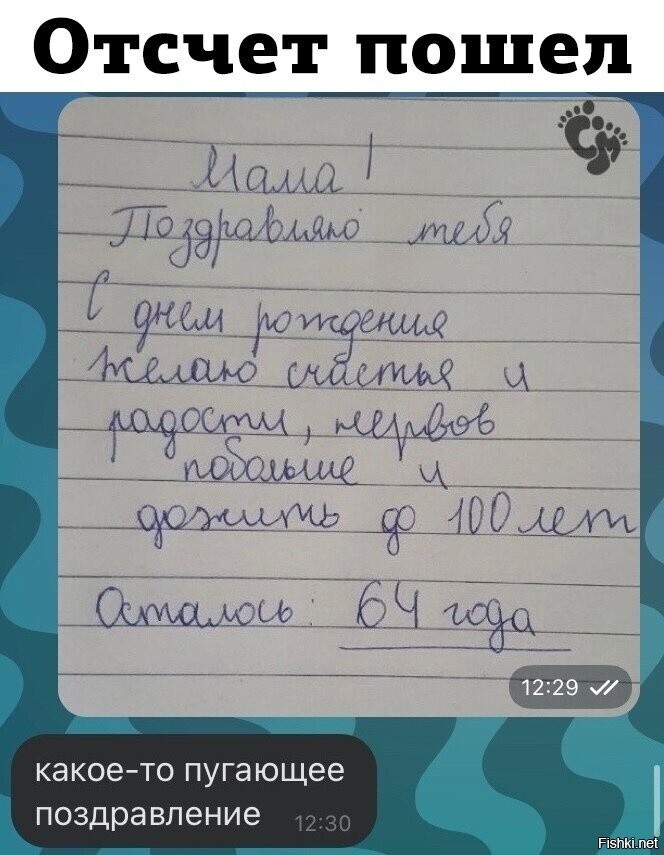 Отсчет пошел
СМ
Мама!
Поздравляю тебя
С днем рождения
желаю счастья и
радости, нервов
побольше и
дожить до 100 лет
Осталось: 64 года
12:29
какое-то пугающее
поздравление 12:30
Fishki.net